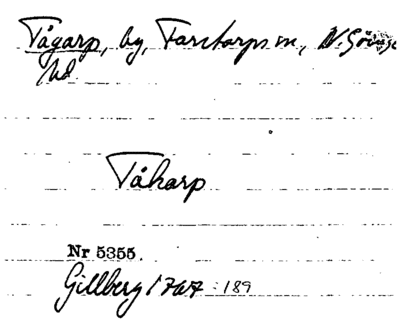 Tågarp, by, Farstorps sn, N. Göinge
hd
Tåharp
Nr 5355.
Gillberg 1767 : 189